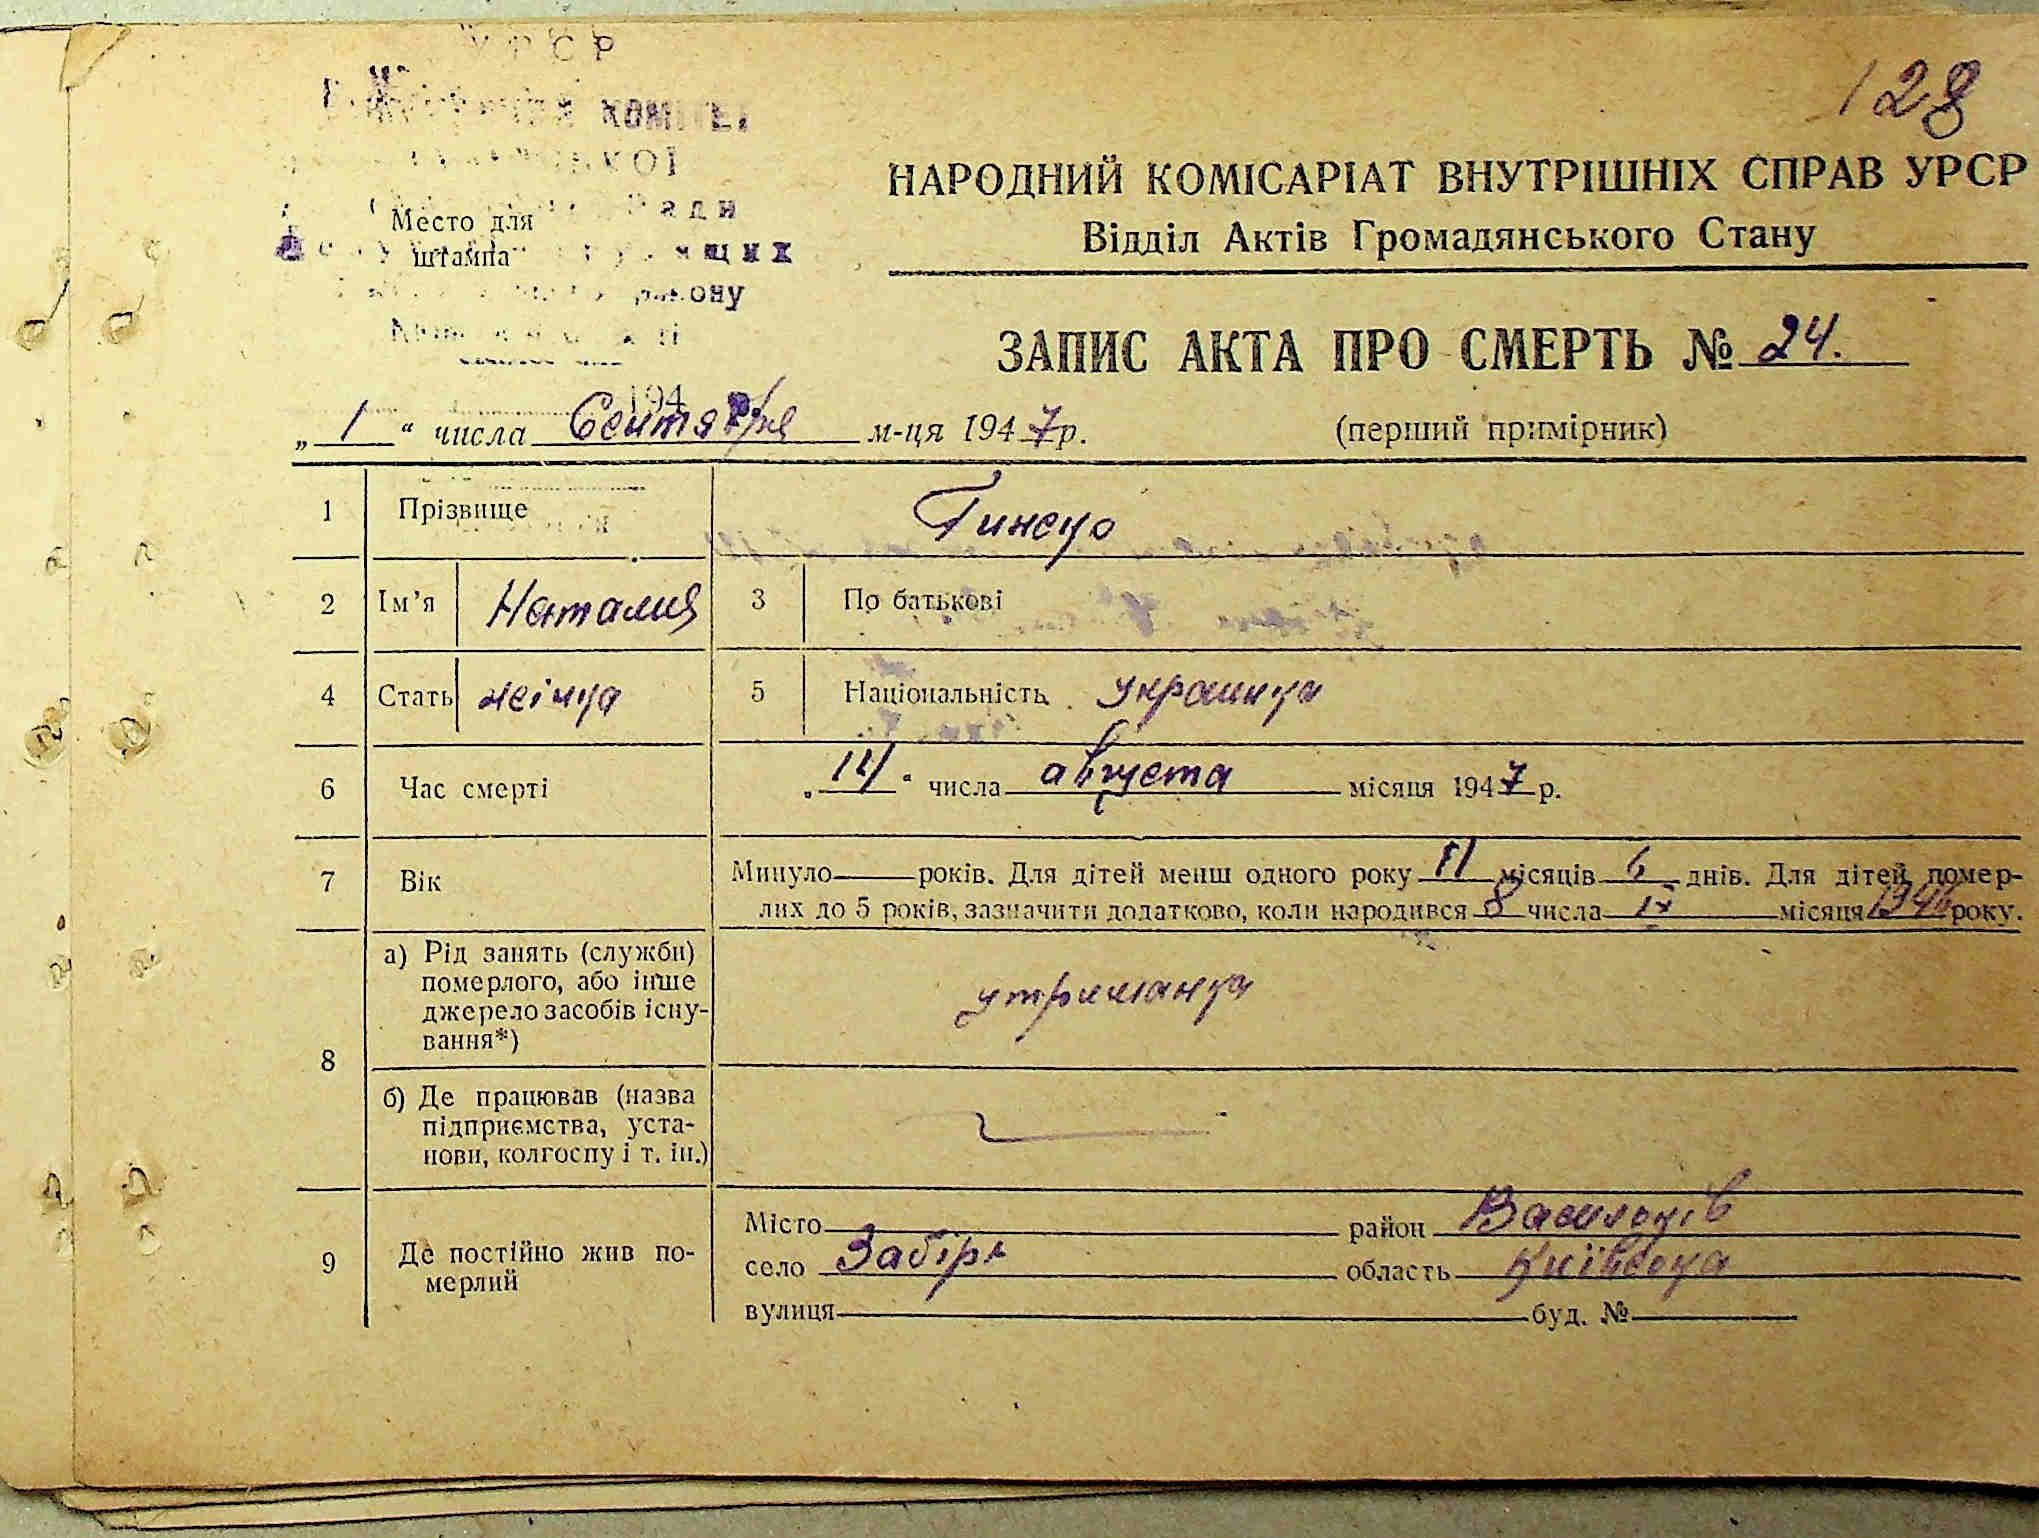 УРСР
КОМІТЕТ
Место для
штампа
194
128
НАРОДНИЙ КОМІСАРІАТ ВНУТРІШНІХ СПРАВ УРСР
Відділ Актів Громадянського Стану
ЗАПИС АКТА ПРО СМЕРТЬ № 24.
„ 1 “ числа Сентября м-ця 1947 р.
(перший примірник)
1 Прізвище
2 Ім’я Наталия 3 По батькові
4 Стать жінка 5 Національність українка
6 Час смерті „ 14 “ числа августа місяця 1947 р.
7 Вік Минуло — років. Для дітей менш одного року 11 місяців 6 днів. Для дітей, помер-
лих до 5 років, зазначити додатково, коли народився 8 числа IX місяця 1946 року.
8 а) Рід занять (служби)
померлого, або інше
джерело засобів існу-
вання*)
утриманка
б) Де працював (назва
підприємства, уста-
нови, колгоспу і т. ін.)
9 Де постійно жив по-
мерлий
Місто район Васильків
село Забірʼя область Київська
вулиця буд. №